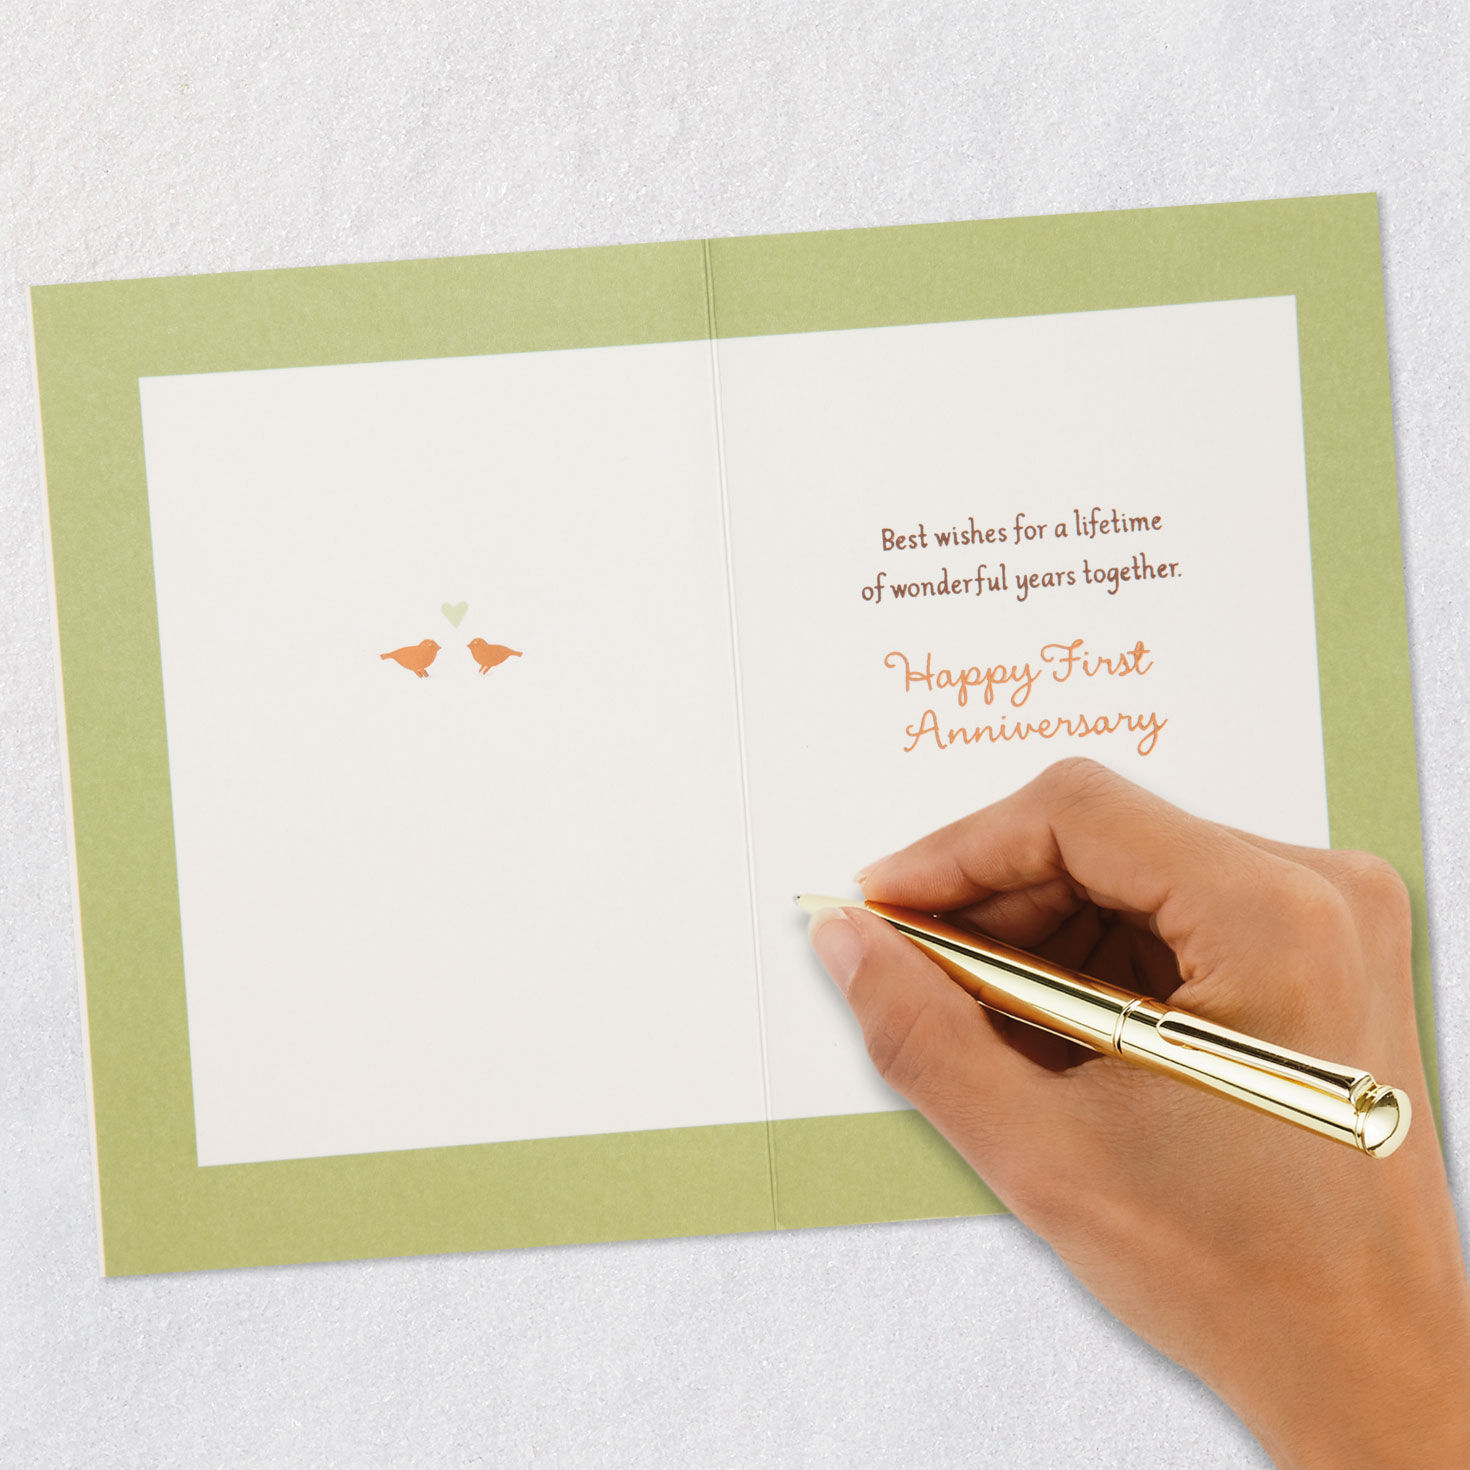 Best wishes for a lifetime
of wonderful years together.
Happy First
Anniversary